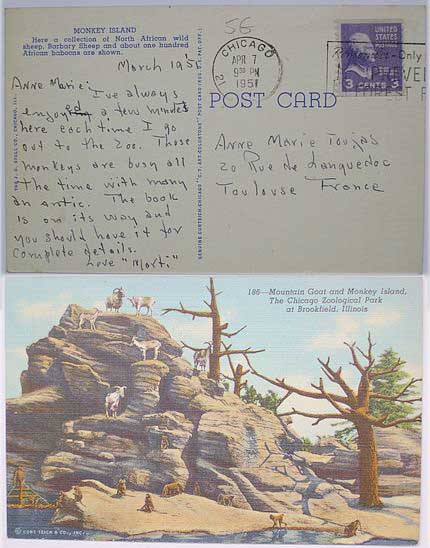 56
MONKEY ISLAND
Here a collection of North African wild
sheep, Barbary Sheep and about one hundred
African baboons are shown.
March 1951
Anne Marie:
I've always
enjoyed a few minutes
here each time I go
out to the zoo. Those
monkeys are busy all
the time with many
an antic. The book
is on its way and
you should have it for
complete details.
Love "Morti"
CHICAGO
APR 7
9 30 PM
1951
UNITED
STATES
POSTAGE
3 CENTS 3
Only
PREVENT
FOREST F
POST CARD
Anne Marie Toujas
20 Rue de Languedoc
Toulouse France
186—Mountain Goat and Monkey Island,
The Chicago Zoological Park
at Brookfield, Illinois
© CURT TEICH & CO., INC.